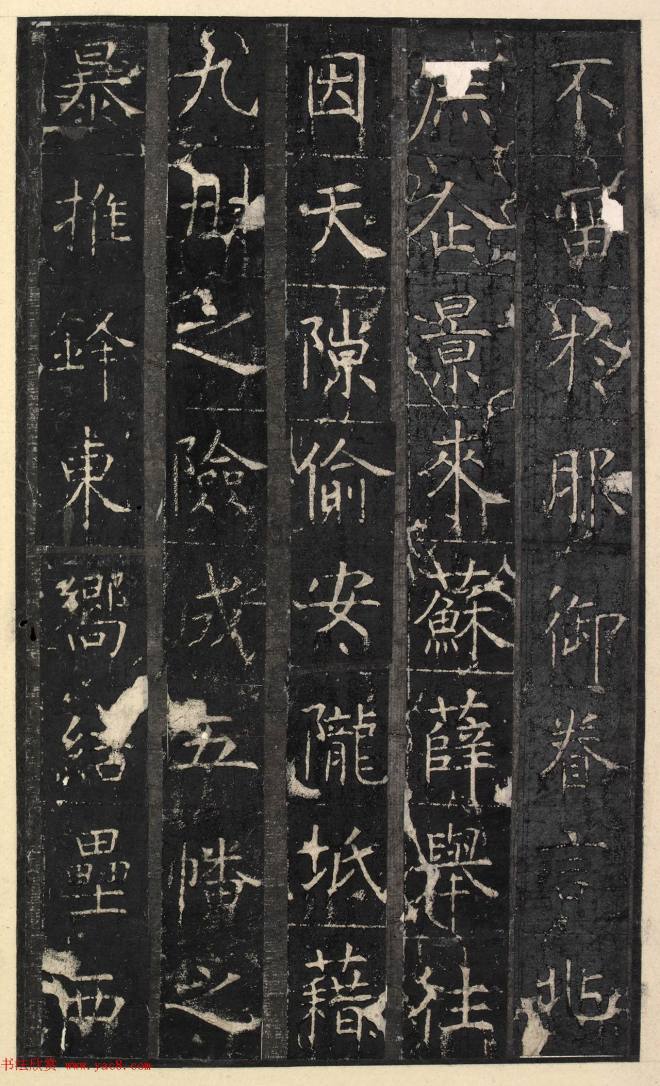 不畱於服御眷言兆
庶企景來蘇薛舉往
因天隙偷安隴坻藉
九州之險成五幡之
暴推鋒東嚮結壘西
书法欣赏 www.yac8.com